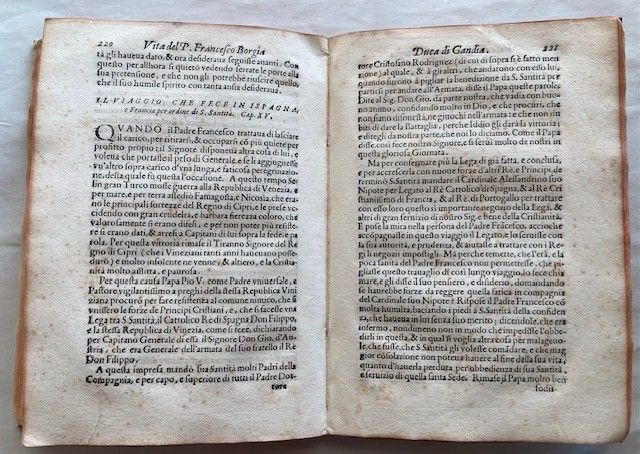 220 Vita del P. Francesco Borgia
tà gli haueua dato, & ora desideraua seguisse auanti. Con
questo per allhora si quietò vedendo serrate le porte alla
sua pretensione, e che non gli potrebbe riuscire quello,
che il suo humile spirito con tanta ansia desideraua.
IL VIAGGIO, CHE FECE IN ISPAGNA,
e Francia per ordine di S. Santità. Cap. XV.
QVANDO il Padre Francesco trattaua di lasciare
il carico, per ritirarsi, & occuparsi cō più quiete per
profitto proprio; il Signore disponeua altra cosa di lui, e
voleua che portasse il peso di Generale, e se li aggiugnesse
vn'altro sopra carico d'vna lunga, e faticosa peregrinazio-
ne, della quale fù questa l'occasione. A questo tempo Se
lin gran Turco mosse guerra alla Republica di Venezia, e
per mar, e per terra assediò Famagosta, e Nicosia, che era-
no le principali fortezze del Regno di Cipri, e le prese vc-
cidendo con gran crudeltà, e barbara fierezza coloro, che
valorosamente si erano difesi, e per non poter più resiste-
re si erano dati, & àresi a Capitani di lui sopra la fede, e pa
rola. Per questa vittoria rimase il Tiranno Signore del Re
gno di Cipri (che i Vineziani tanti anni haueuano posse-
duto) e molto insolente ne venne, & altiero, e la Cristia-
nità molto afflitta, e paurosa.
Per questa causa Papa Pio V. come Padre vniuersale, e
Pastore vigilantissimo a preghi della stessa Republica Vini
ziana procurò per fare resistenza al comune nimico, che si
vnissero le forze de Principi Cristiani, e, che si facesse vna
Lega tra S Santità, il Cattolico Rè di Spagna Don Filippo,
e la stessa Republica di Vinezia, come si fece, dichiarando
per Capitano Generale di essa il Signore Don Gio. d'Au-
stria, che era Generale dell'armata del suo fratello il Rè
Don Filippo.
A questa impresa mandò sua Santità molti Padri della
Compagnia, e per capo, e superiore di tutti il Padre Dot-
tore
Duca di Gandia. 221
tore Cristofano Rodriguez (di cui di sopra si è fatto men-
zione) al quale, & à gli altri, che andarono con esso lui,
quando vennero à pigliar la benedizione da S. Santità per
partirsi per andare all'Armata, disse il Papa queste parole.
Dite al Sig. Don Gio. da parte nostra, che vadia con buon
animo, confidando molto in Dio, e che procuri, che
non diuenti più tardi di quello, che gli habbiamo detto
in dar la Battaglia, perche Iddio gli darà la vittoria, e
ditegli da nostra parte, che noi lo diciamo. Come il Papa
disse, così fece nostro Signore, e si serui molto de nostri in
questa gloriosa Giornata.
Ma per conseguire più la Lega di già fatta, e conclusa,
e per accrescerla con nuoue forze d'altri Rè, e Principi, de
terminò S. Santità mandare il Cardinale Alessandrino suo
Nipote per Legato al Rè Cattolico di Spagna, & al Rè Cri
stianissimo di Francia, & al Rè di Portogallo per trattare
con esso loro questo sì importante negozio della Lega, &
altri di gran seruizio di nostro Sig. e bene della Cristianità.
E pose la mira nella persona del Padre Frācesco, acciochè
accōpagnasse in questo viaggio il Legato, e lo seruisse con la
sua autorità, e prudenza, & aiutasse a trattare con i Re
gi li negozi impostigli. Ma perche temette, che l'età, e la
poca sanità del Padre Francesco non permettesse, che pi-
gliasse questo trauaglio di così lungo viaggio, lo fece chia
mare, e gli disse il suo pensiero, e desiderio, domandando
se hauerebbe forze da reggere quella fatica in compagnia
del Cardinale suo Nipote? Rispose il Padre Francesco cō
molta humiltà, baciando i piedi à S. Santità della confiden
za, che haueua in lui senza suo merito; dicendole, che era
infermo, nondimeno non in modo che impedisse l'obbe-
dirli in questa, & in qual si voglia altra cosa per malageuo-
le, che fusse, che S. Santità gli volesse comādare, e che mag
gior cōsolazione non poteua hauere al fine della sua vita,
quanto d'hauerla perduta per obbedienza di sua Santità,
e seruizio di quella santa Sede. Rimase il Papa molto ben
sodis-